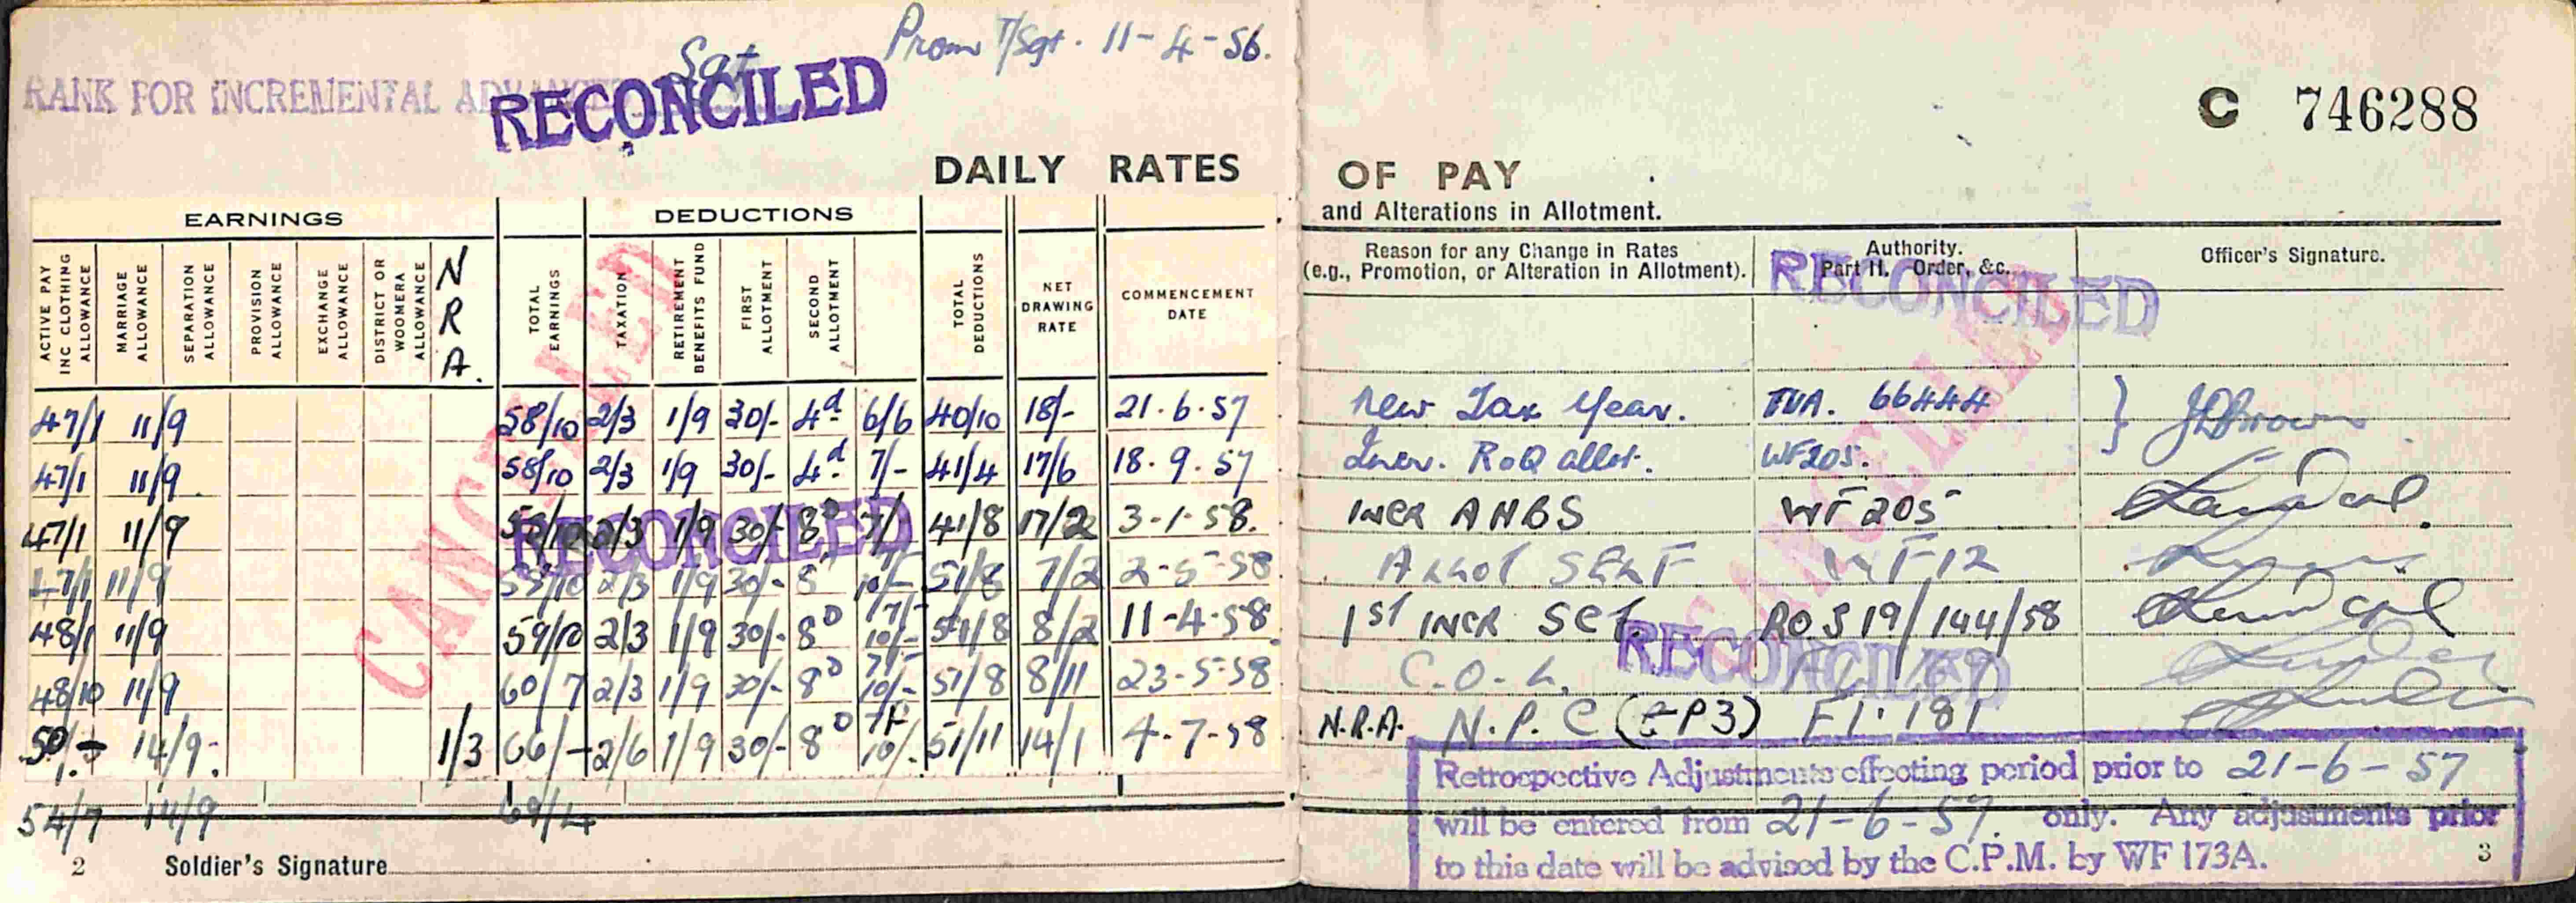 Sgt Prom T/Sgt. 11-4-56.
RANK FOR INCREMENTAL
RECONCILED
C 746288
DAILY RATES OF PAY
and Alterations in Allotment.
EARNINGS DEDUCTIONS
ACTIVE PAY INC CLOTHING ALLOWANCE
MARRIAGE ALLOWANCE
SEPARATION ALLOWANCE
PROVISION ALLOWANCE
EXCHANGE ALLOWANCE
DISTRICT OR WOOMERA ALLOWANCE
N R A.
TOTAL EARNINGS
TAXATION
RETIREMENT BENEFITS FUND
FIRST ALLOTMENT
SECOND ALLOTMENT
TOTAL DEDUCTIONS
NET DRAWING RATE
COMMENCEMENT DATE
Reason for any Change in Rates
(e.g., Promotion, or Alteration in Allotment).
Authority.
Part II. Order, &c.
Officer's Signature.
RECONCILED
CANCELLED
CANCELLED
47/1 11/9 58/10 2/3 1/9 30/- 4d 6/6 40/10 18/- 21.6.57 New Tax Year. 66444
47/1 11/9 58/10 2/3 1/9 30/- 4d 7/- 41/4 17/6 18.9.57 Incr. RoQ allot. WF205.
47/1 11/9 58/10 2/3 1/9 30/- 8D 7/- 41/8 17/2 3-1-58. INCR ANBS WF 205
RECONCILED
47/1 11/9 58/10 2/3 1/9 30/- 8D 7/- 10/- 51/8 7/2 2-5-58 WF12
48/1 11/9 59/10 2/3 1/9 30/- 8D 7/- 10/- 51/8 8/2 11-4-58 1ST INCR SGT ROS 19/144/58
RECONCILED
48/10 11/9 60/7 2/3 1/9 30/- 8D 7/- 10/- 51/8 8/11 23-5-58 C.O.L.
50/- 14/9 1/3 66/- 2/6 1/9 30/- 8D 7/- 10/- 51/11 14/1 4-7-58 N.R.A. N.P.C (EP3) F1.181
54/7 14/9 69/4
Retrospective Adjustments effecting period prior to 21-6-57
will be entered from 21-6-57. only. Any adjustments prior
to this date will be advised by the C.P.M. by WF 173A.
2 Soldier's Signature 3